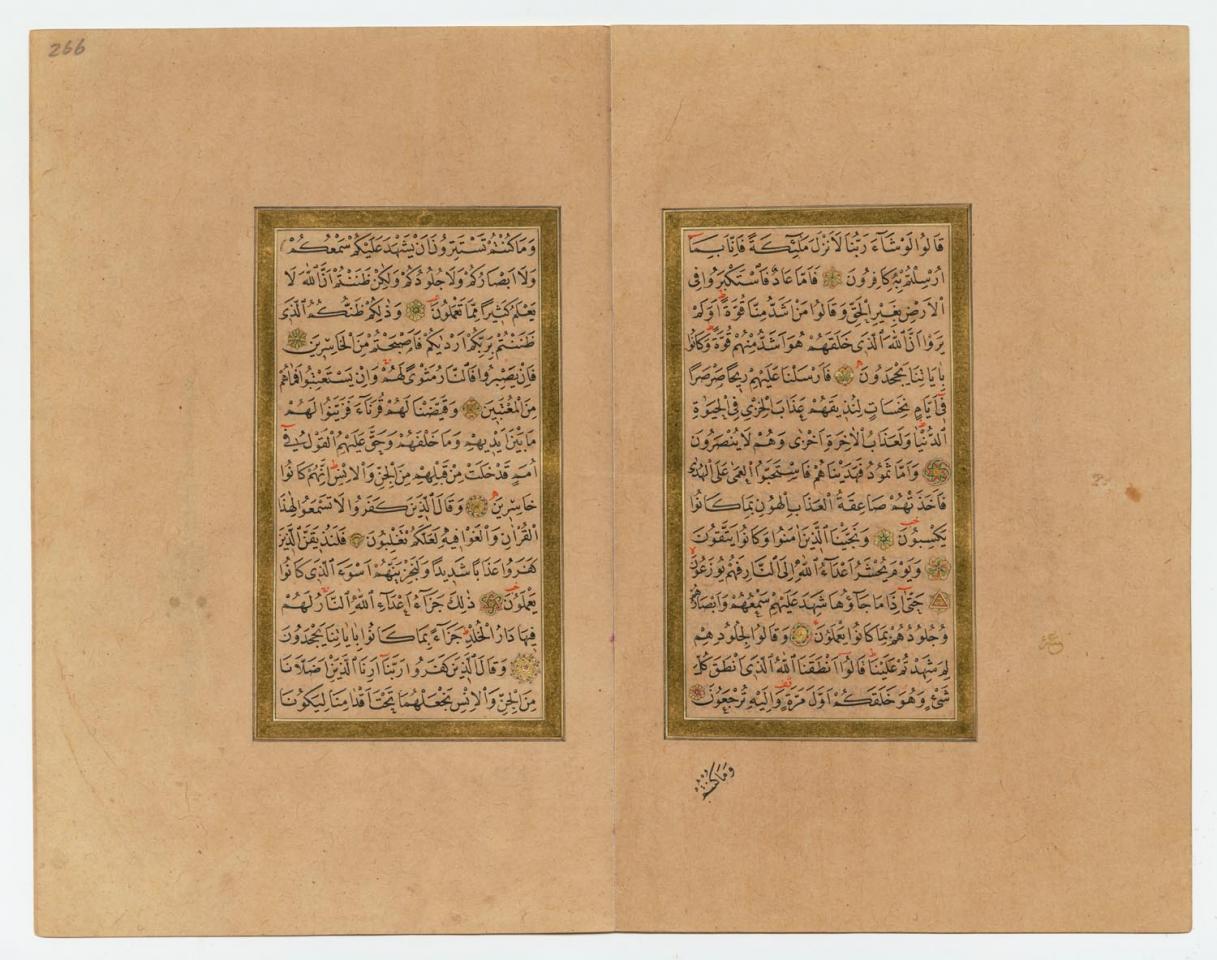 قَالُوا لَوْ شَاءَ رَبُّنَا لَاَنْزَلَ مَلٰئِكَةً فَاِنَّا بِمَا
اُرْسِلْتُمْ بِهِ كَافِرُونَ فَاَمَّا عَادٌ فَاسْتَكْبَرُوا فِى
الْاَرْضِ بِغَيْرِ الْحَقِّ وَقَالُوا مَنْ اَشَدُّ مِنَّا قُوَّةً اَوَلَمْ
يَرَوْا اَنَّ اللّٰهَ الَّذِى خَلَقَهُمْ هُوَ اَشَدُّ مِنْهُمْ قُوَّةً وَكَانُوا
بِاٰيَاتِنَا يَجْحَدُونَ فَاَرْسَلْنَا عَلَيْهِمْ رِيحًا صَرْصَرًا
فِى اَيَّامٍ نَحِسَاتٍ لِنُذِيقَهُمْ عَذَابَ الْخِزْىِ فِى الْحَيٰوةِ
الدُّنْيَا وَلَعَذَابُ الْاٰخِرَةِ اَخْزٰى وَهُمْ لَا يُنْصَرُونَ
وَاَمَّا ثَمُودُ فَهَدَيْنَاهُمْ فَاسْتَحَبُّوا الْعَمٰى عَلَى الْهُدٰى
فَاَخَذَتْهُمْ صَاعِقَةُ الْعَذَابِ الْهُونِ بِمَا كَانُوا
يَكْسِبُونَ وَنَجَّيْنَا الَّذِينَ اٰمَنُوا وَكَانُوا يَتَّقُونَ
وَيَوْمَ يُحْشَرُ اَعْدَاءُ اللّٰهِ اِلَى النَّارِ فَهُمْ يُوزَعُونَ
حَتّٰى اِذَا مَا جَاؤُهَا شَهِدَ عَلَيْهِمْ سَمْعُهُمْ وَاَبْصَارُهُمْ
وَجُلُودُهُمْ بِمَا كَانُوا يَعْمَلُونَ وَقَالُوا لِجُلُودِهِمْ
لِمَ شَهِدْتُمْ عَلَيْنَا قَالُوا اَنْطَقَنَا اللّٰهُ الَّذِى اَنْطَقَ كُلَّ
شَىْءٍ وَهُوَ خَلَقَكُمْ اَوَّلَ مَرَّةٍ وَاِلَيْهِ تُرْجَعُونَ
وَمَا كُنْتُمْ
266
وَمَا كُنْتُمْ تَسْتَتِرُونَ اَنْ يَشْهَدَ عَلَيْكُمْ سَمْعُكُمْ
وَلَا اَبْصَارُكُمْ وَلَا جُلُودُكُمْ وَلٰكِنْ ظَنَنْتُمْ اَنَّ اللّٰهَ لَا
يَعْلَمُ كَثِيرًا مِمَّا تَعْمَلُونَ وَذٰلِكُمْ ظَنُّكُمُ الَّذِى
ظَنَنْتُمْ بِرَبِّكُمْ اَرْدٰيكُمْ فَاَصْبَحْتُمْ مِنَ الْخَاسِرِينَ
فَاِنْ يَصْبِرُوا فَالنَّارُ مَثْوًى لَهُمْ وَاِنْ يَسْتَعْتِبُوا فَمَاهُمْ
مِنَ الْمُعْتَبِينَ وَقَيَّضْنَا لَهُمْ قُرَنَاءَ فَزَيَّنُوا لَهُمْ
مَا بَيْنَ اَيْدِيهِمْ وَمَا خَلْفَهُمْ وَحَقَّ عَلَيْهِمُ الْقَوْلُ فِى
اُمَمٍ قَدْ خَلَتْ مِنْ قَبْلِهِمْ مِنَ الْجِنِّ وَالْاِنْسِ اِنَّهُمْ كَانُوا
خَاسِرِينَ وَقَالَ الَّذِينَ كَفَرُوا لَا تَسْمَعُوا لِهٰذَا
الْقُرْاٰنِ وَالْغَوْا فِيهِ لَعَلَّكُمْ تَغْلِبُونَ فَلَنُذِيقَنَّ الَّذِينَ
كَفَرُوا عَذَابًا شَدِيدًا وَلَنَجْزِيَنَّهُمْ اَسْوَءَ الَّذِى كَانُوا
يَعْمَلُونَ ذٰلِكَ جَزَاءُ اَعْدَاءِ اللّٰهِ النَّارُ لَهُمْ
فِيهَا دَارُ الْخُلْدِ جَزَاءً بِمَا كَانُوا بِاٰيَاتِنَا يَجْحَدُونَ
وَقَالَ الَّذِينَ كَفَرُوا رَبَّنَا اَرِنَا الَّذَيْنِ اَضَلَّانَا
مِنَ الْجِنِّ وَالْاِنْسِ نَجْعَلْهُمَا تَحْتَ اَقْدَامِنَا لِيَكُونَا